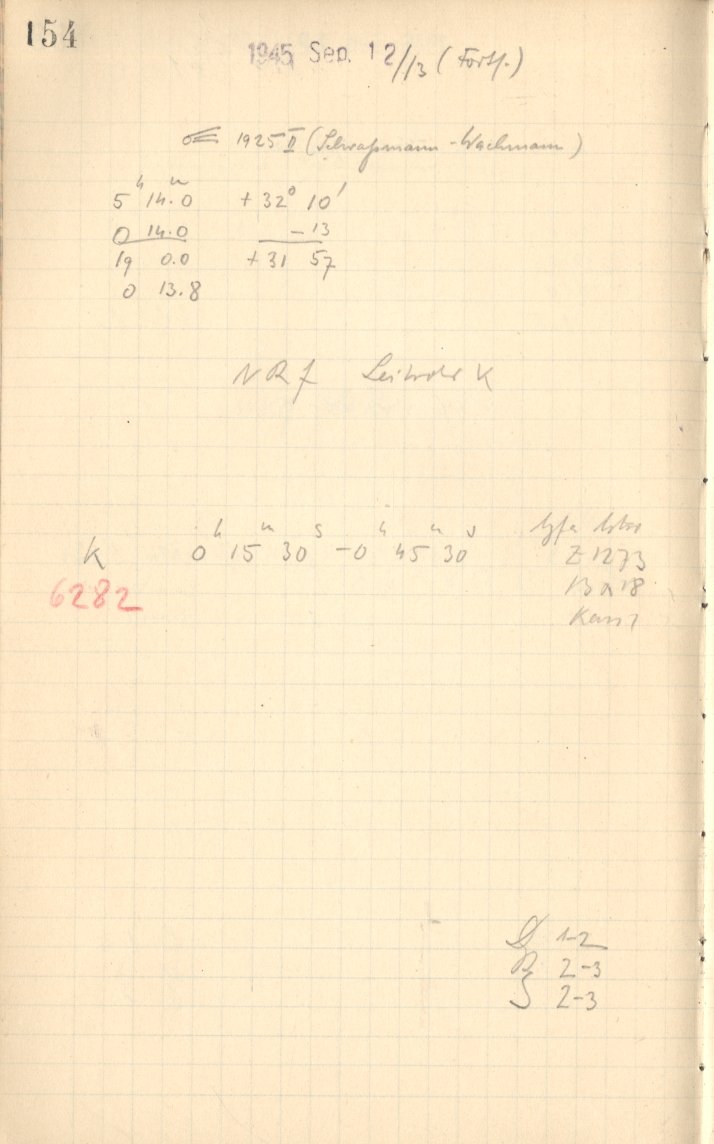 154
1945 Sep. 12/13 (Forts.)
1925 II (Schwaßmann-Wachmann)
5h 14m.0 +32° 10'
0 14.0 -13
19 0.0 +31 57
0 13.8
NRf Leitrohr K
K 0h 15m 30s - 0h 45m 30s
6282
Z 1273
1-2
R 2-3
2-3